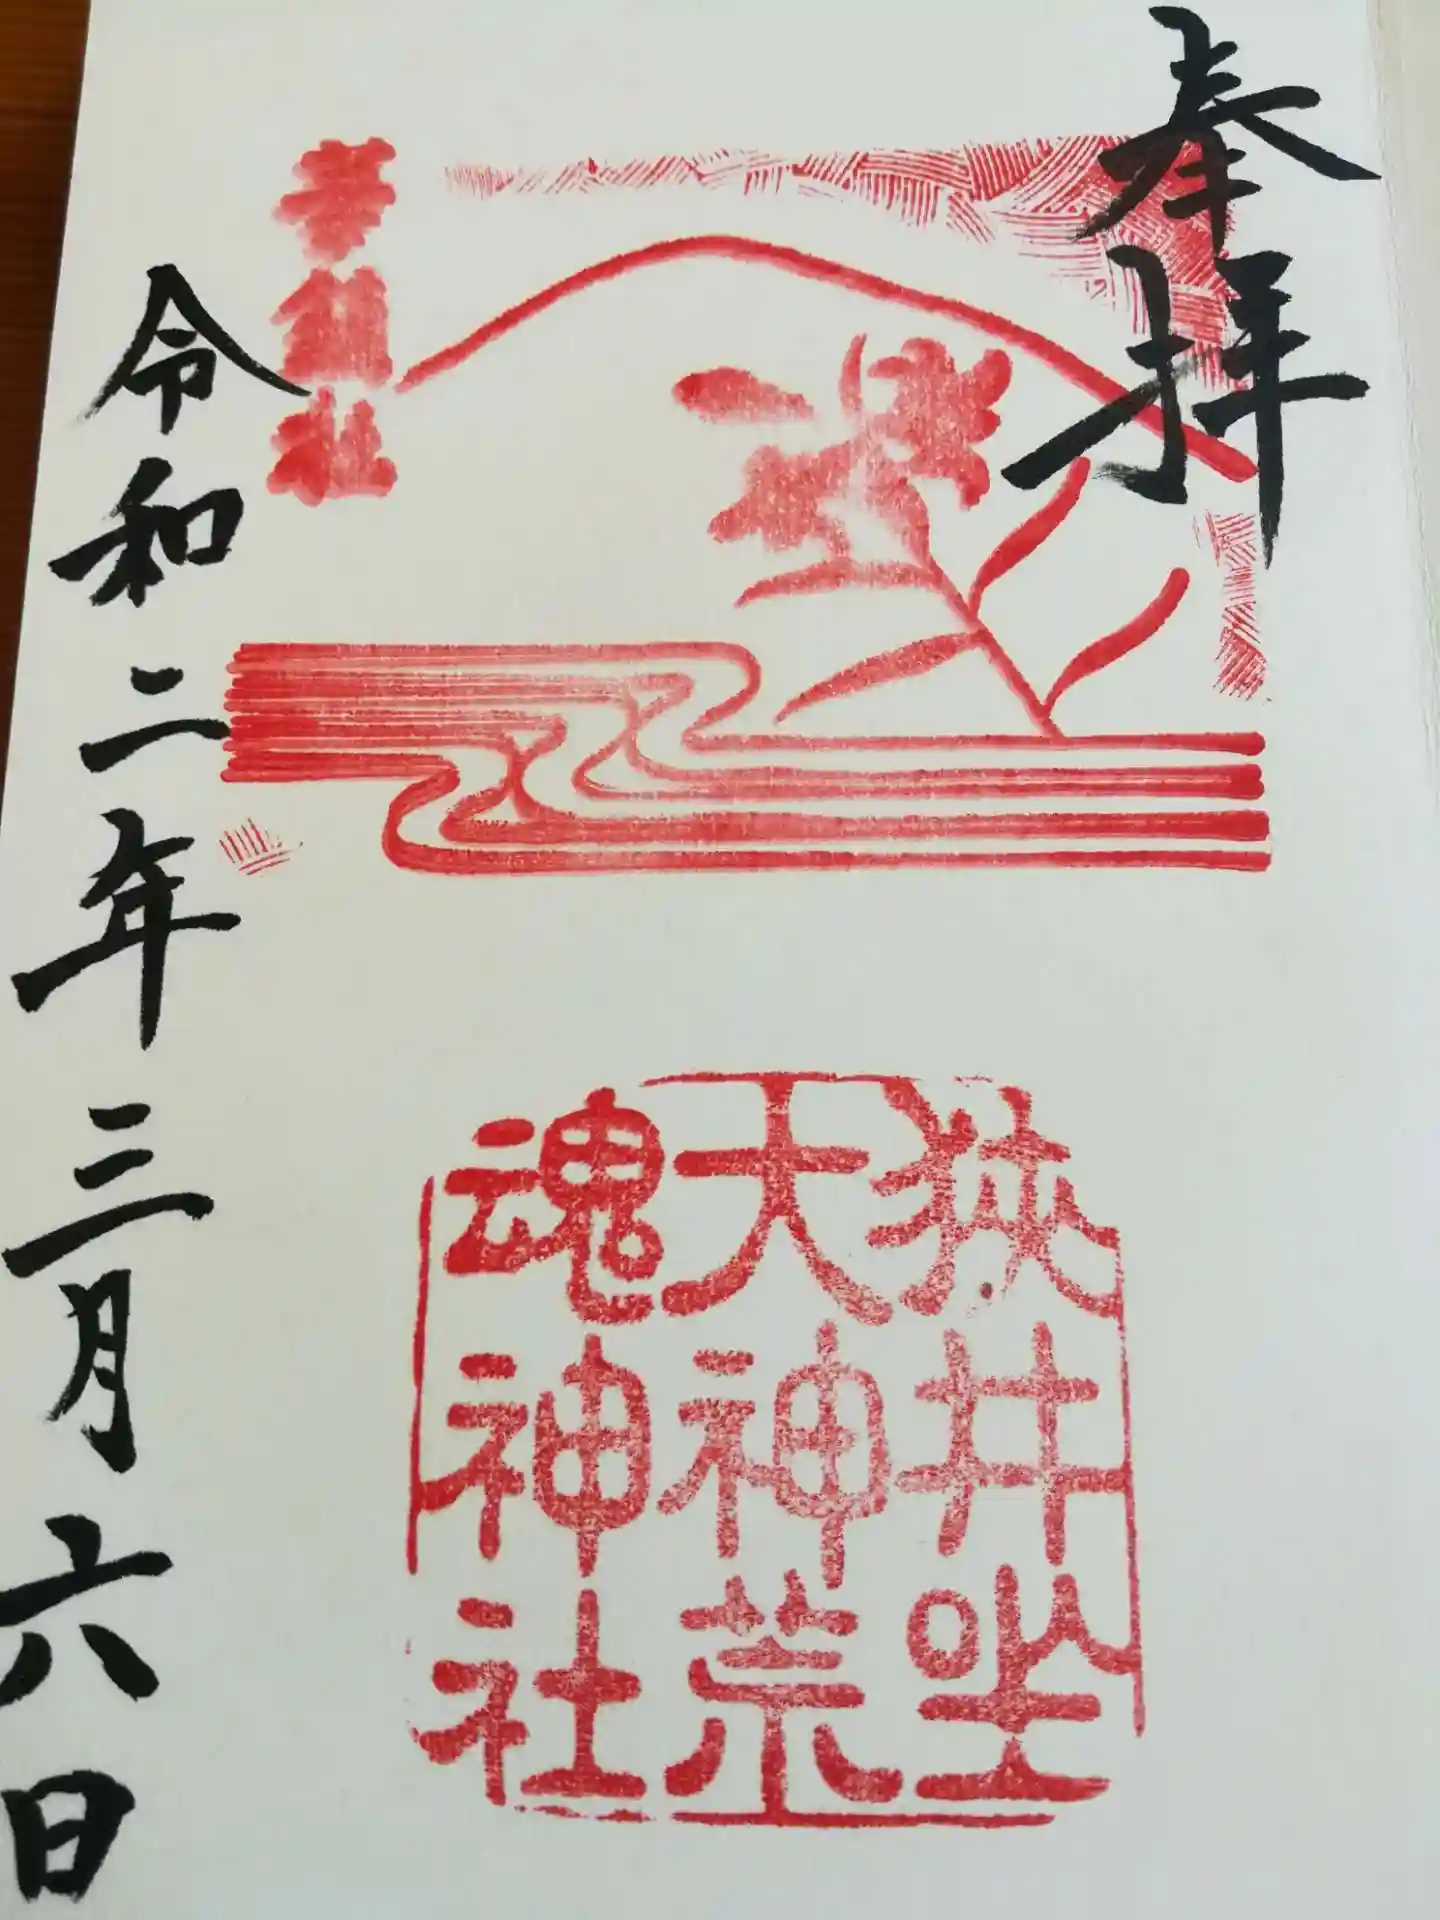 奉拝
狭井坐
大神荒
魂神社
令和二年三月六日